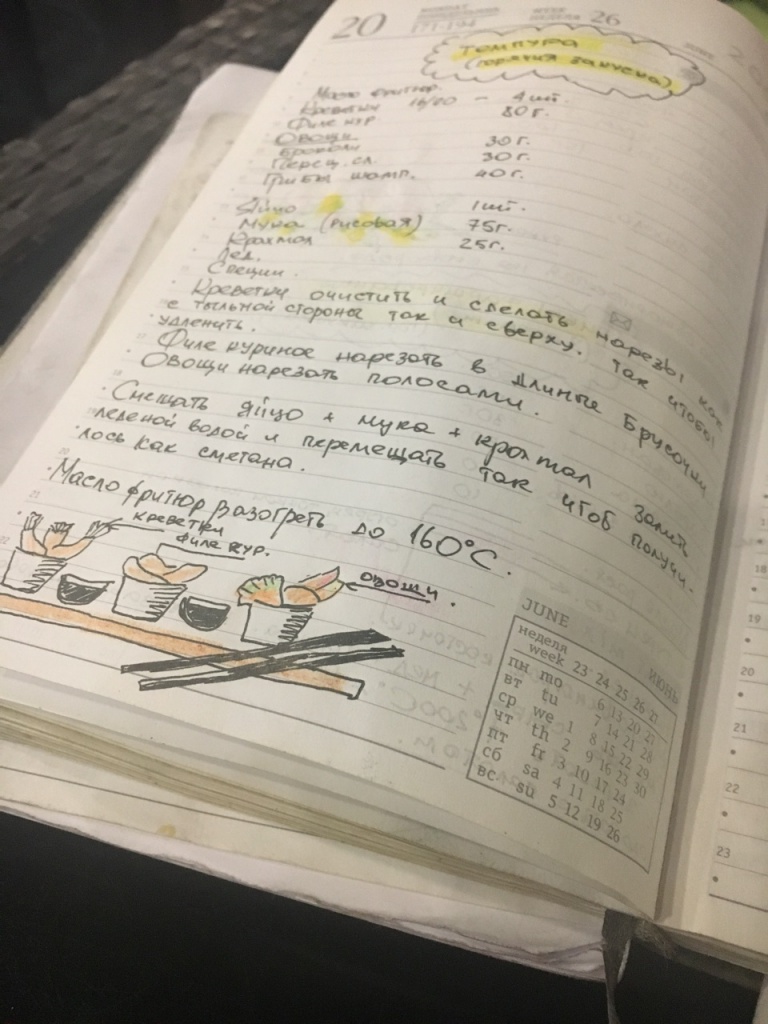 20
171-194
НЕДЕЛЯ 26
JUNE
Темпура
(горячая закуска)
Масло фритюр.
Креветки 16/20 - 4 шт.
Филе кур 80 г.
Овощи
Броколи 30 г.
Перец. сл. 30 г.
Грибы шамп. 40 г.
Яйцо 1 шт.
Мука (рисовая) 75 г.
Крахмал 25 г.
Лед.
Специи.
Креветки очистить и сделать нарезы как
с тыльной стороны так и сверху. Так чтобы
удленить.
Филе куриное нарезать в длиные брусочки
Овощи нарезать полосами.
Смешать яйцо + мука + крахмал залить
леденой водой и перемещать так чтоб получи-
лось как сметана.
Масло фритюр разогреть до 160°C.
креветки
филе кур.
овощи.
JUNE ИЮНЬ
неделя
week 23 24 25 26 27
пн mo 6 13 20 27
вт tu 7 14 21 28
ср we 1 8 15 22 29
чт th 2 9 16 23 30
пт fr 3 10 17 24
сб sa 4 11 18 25
вс su 5 12 19 26
18
19
20
21
22
23